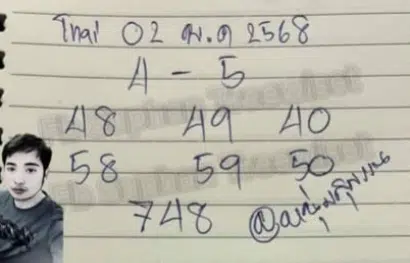 Thai 02 พ.ค 2568
4 - 5
48 49 40
58 59 50
748